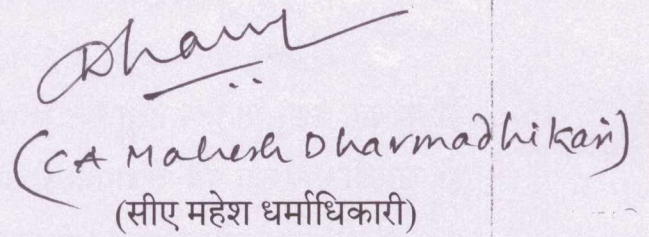 (CA Mahesh Dharmadhikari)
(सीए महेश धर्माधिकारी)